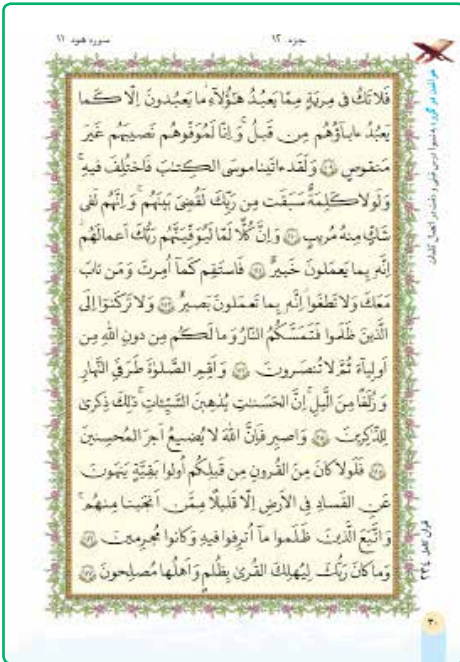 سوره هود ۱۱
جزء ۱۲
فَلا تَكُ فى مِريَةٍ مِمّا يَعبُدُ هٰٓؤُلآءِ ما يَعبُدونَ اِلّا كَما
يَعبُدُ ءابآؤُهُم مِن قَبلُ وَ اِنّا لَمُوَفّوهُم نَصيبَهُم غَيرَ
مَنقوصٍ ۱۰۹ وَ لَقَد ءاتَينا موسَى الكِتٰبَ فَاختُلِفَ فيهِ
وَ لَولا كَلِمَةٌ سَبَقَت مِن رَبِّكَ لَقُضِىَ بَينَهُم وَ اِنَّهُم لَفى
شَكٍّ مِنهُ مُريبٍ ۱۱۰ وَ اِنَّ كُلًّا لَمّا لَيُوَفِّيَنَّهُم رَبُّكَ اَعمالَهُم
اِنَّهو بِما يَعمَلونَ خَبيرٌ ۱۱۱ فَاستَقِم كَمآ اُمِرتَ وَ مَن تابَ
مَعَكَ وَ لا تَطغَوا اِنَّهو بِما تَعمَلونَ بَصيرٌ ۱۱۲ وَ لا تَركَنوا اِلَى
الَّذينَ ظَلَموا فَتَمَسَّكُمُ النّارُ وَ ما لَكُم مِن دونِ اللهِ مِن
اَولِيآءَ ثُمَّ لا تُنصَرونَ ۱۱۳ وَ اَقِمِ الصَّلوٰةَ طَرَفَىِ النَّهارِ
وَ زُلَفًا مِنَ الَّيلِ اِنَّ الحَسَنٰتِ يُذهِبنَ السَّيِّئاتِ ذٰلِكَ ذِكرىٰ
لِلذّٰكِرينَ ۱۱۴ وَ اصبِر فَاِنَّ اللهَ لا يُضيعُ اَجرَ المُحسِنينَ
۱۱۵ فَلَولا كانَ مِنَ القُرونِ مِن قَبلِكُم اُولوا بَقِيَّةٍ يَنهَونَ
عَنِ الفَسادِ فِى الاَرضِ اِلّا قَليلًا مِمَّن اَنجَينا مِنهُم
وَ اتَّبَعَ الَّذينَ ظَلَموا مآ اُترِفوا فيهِ وَ كانوا مُجرِمينَ ۱۱۶
وَ ما كانَ رَبُّكَ لِيُهلِكَ القُرىٰ بِظُلمٍ وَ اَهلُها مُصلِحونَ ۱۱۷
قرآن کامل ۲۳۴
۳۰